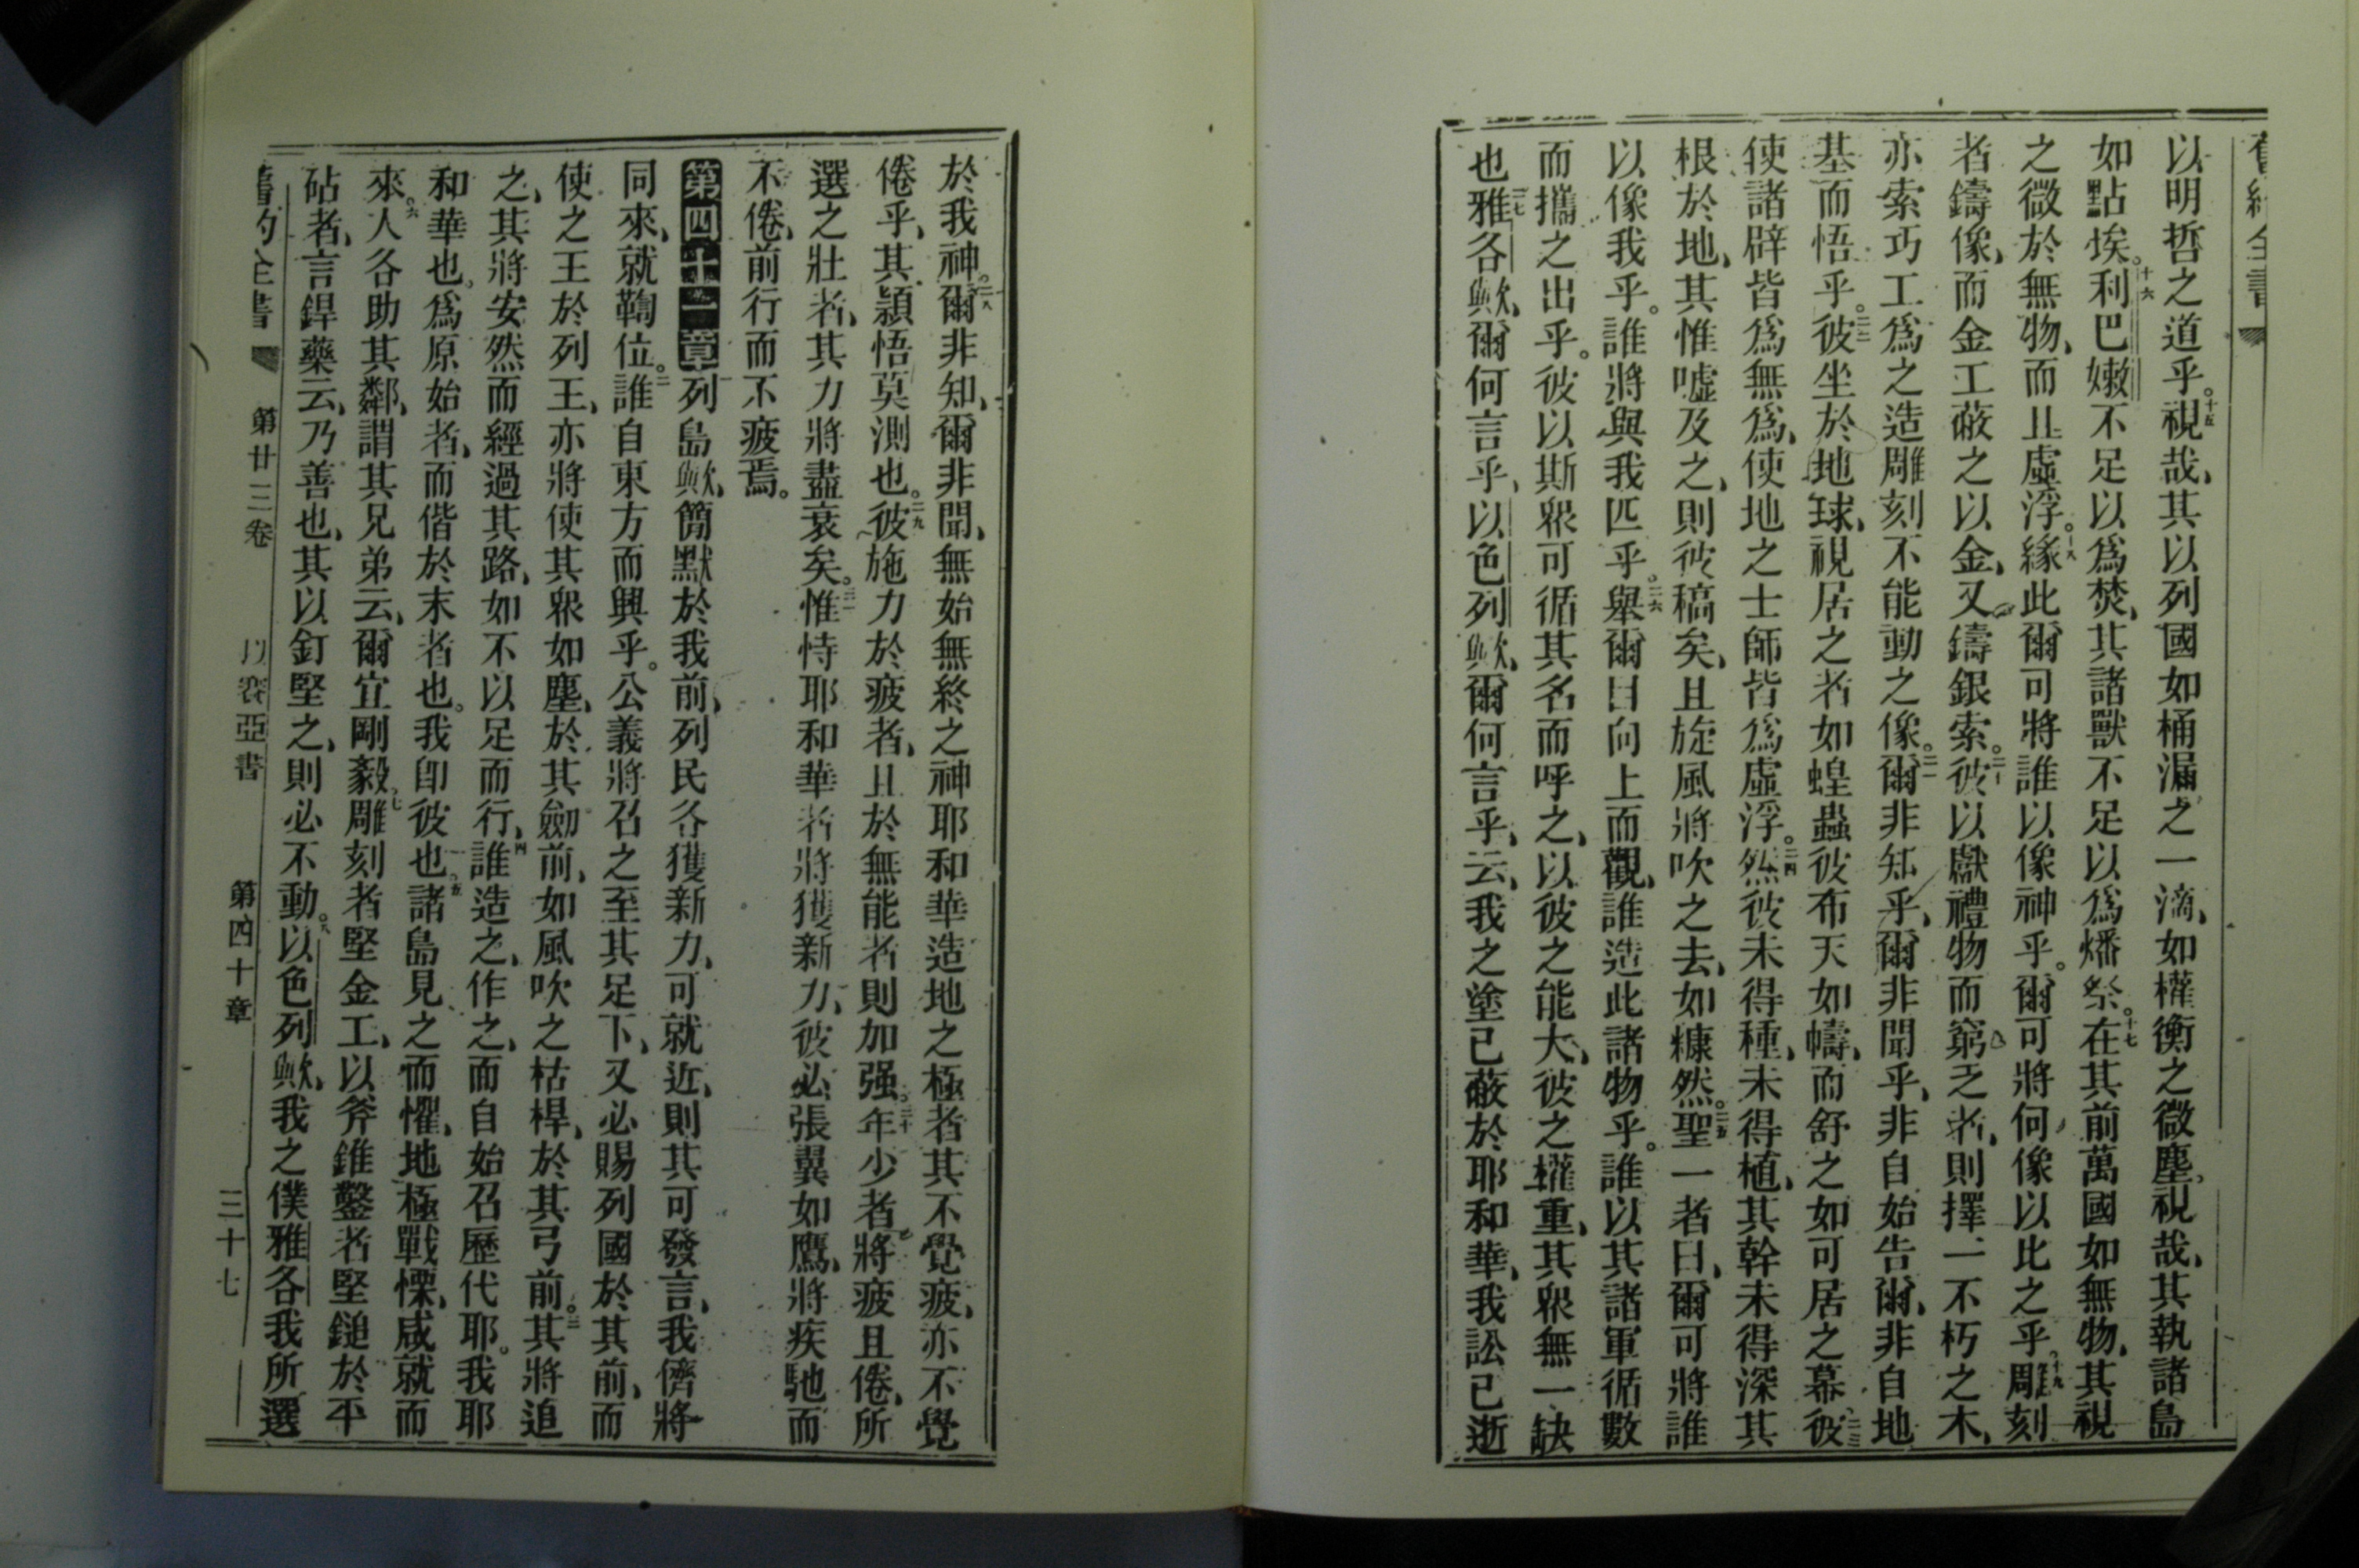 舊約全書
以明哲之道乎。十五視哉、其以列國如桶漏之一滴、如權衡之微塵。視哉、其執諸島
如點埃。十六利巴嫩不足以爲焚、其諸獸不足以爲燔祭。十七在其前萬國如無物、其視
之微於無物、而且虛浮。十八緣此爾可將誰以像神乎。爾可將何像以比之乎。十九雕刻
者鑄像、而金工蔽之以金、又鑄銀索。二十彼以獻禮物而窮乏者、則擇一不朽之木、
亦索巧工爲之造雕刻不能動之像。二一爾非知乎、爾非聞乎、非自始告爾、非自地
基而悟乎。二二彼坐於地球、視居之者如蝗蟲彼布天如幬、而舒之如可居之幕、二三彼
使諸辟皆爲無爲、使地之士師皆爲虛浮。二四然彼未得種、未得植、其幹未得深其
根於地、其惟噓及之、則彼稿矣、且旋風將吹之去、如糠然。二五聖一者曰、爾可將誰
以像我乎。誰將與我匹乎。二六舉爾目向上而觀、誰造此諸物乎。誰以其諸軍循數
而攜之出乎。彼以斯眾可循其名而呼之、以彼之能大、彼之權重、其眾無一缺
也二七雅各歟、爾何言乎、以色列歟、爾何言乎、云、我之塗已蔽於耶和華、我訟已逝
於我神。二八爾非知、爾非聞、無始無終之神耶和華造地之極者其不覺疲、亦不覺
倦乎、其穎悟莫測也。二九彼施力於疲者、且於無能者則加强。三十年少者將疲且倦、所
選之壯者、其力將盡衰矣。三一惟恃耶和華者將獲新力、彼必張翼如鷹、將疾馳而
不倦、前行而不疲焉。
第四十一章列島歟、簡默於我前、列民各獲新力、可就近、則其可發言、我儕將
同來、就鞫位。二誰自東方而興乎。公義將召之至其足下、又必賜列國於其前、而
使之王於列王、亦將使其眾如塵、於其劒前、如風吹之枯桿、於其弓前。三其將追
之、其將安然而經過其路、如不以足而行、四誰造之、作之、而自始召歷代耶。我耶
和華也。爲原始者、而偕於末者也。我卽彼也。五諸島見之而懼、地極戰慄、咸就而
來。六人各助其鄰、謂其兄弟云、爾宜剛毅、七雕刻者堅金工、以斧錐鑿者堅鎚於平
砧者、言銲藥云、乃善也、其以釘堅之、則必不動。八以色列歟、我之僕雅各我所選
舊約全書　第廿三卷　以賽亞書　第四十章　三十七